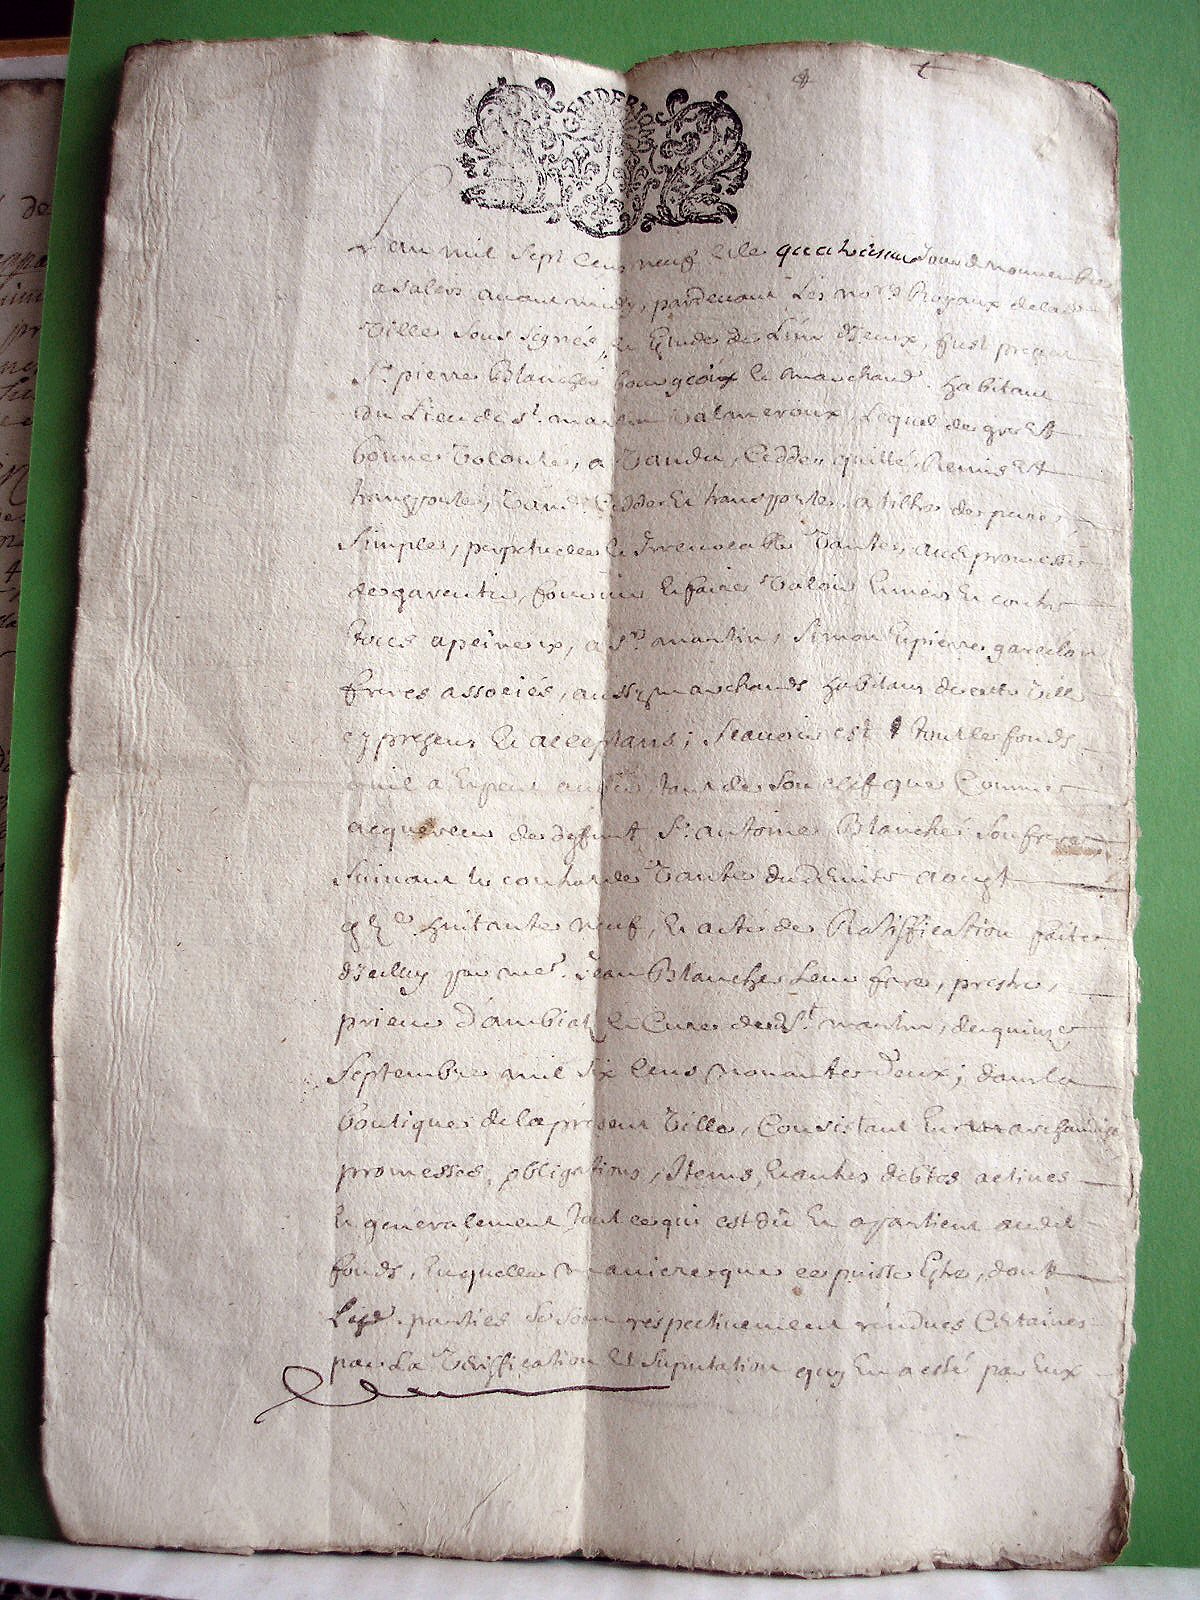 GEN DE RIOM
L'an mil sept cens neuf et le quatriesme Jour de nouembre
a salers auant midy, pardeuant Les no.res Royaux de lad.
Ville sous signés, en Etude de L'un d'Eux, fust present
S.r pierre Blanchés bourgeois et marchand. habitant
du Lieu de S.t martin Valmeroux, Lequel de gré et
bonne Volonté, a Vandu, Ceddé, quitté, Remis et
transporté, Vand, Cedde et transporte, a tiltre de pure,
Simple, perpetuelle et Irreuocable Vante, auec promesse
de garentir, fournir et faire Valoir Enuers et contre
tous a peine &, a S.rs martin, Simon et pierre garcelon
freres associés, aussy marchands habitans de cette Ville
cy presens et acceptans; Scauoir est tout le fonds
quil a et peut auoir, tant de son chef que Comme
acquereur de deffunt S.r antoine Blanchés son frere
Suiuant le contrat de Vante du dernier aougt
huitante neuf, et acte de Ratiffication faite
d'icelluy par me.e Jean Blanchés Leur frere, prestre,
prieur d'ambial et Cure dud. S.t martin, du quinze
Septembre mil six Cens nonante deux; dans la
boutique de la present Ville, Consistant En marchandises
promesses, obligations, Items, et autres debtes actiues
et generalement tout ce qui est dû et appartient audit
fonds, En quelle maniere que ce puisse Estre, dont
Lesd. parties Se sont respectiuement rendues Certaines
par La Veriffication et Suputation quy En a esté par Eux